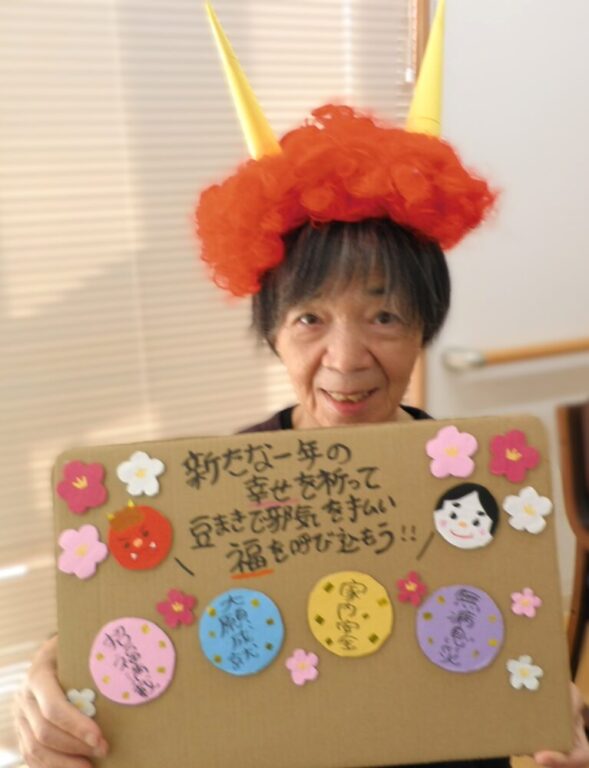 新たな一年の
幸せを祈って
豆まきで邪気を払い
福を呼び込もう!!
招福
大願成就
家内安全
無病息災